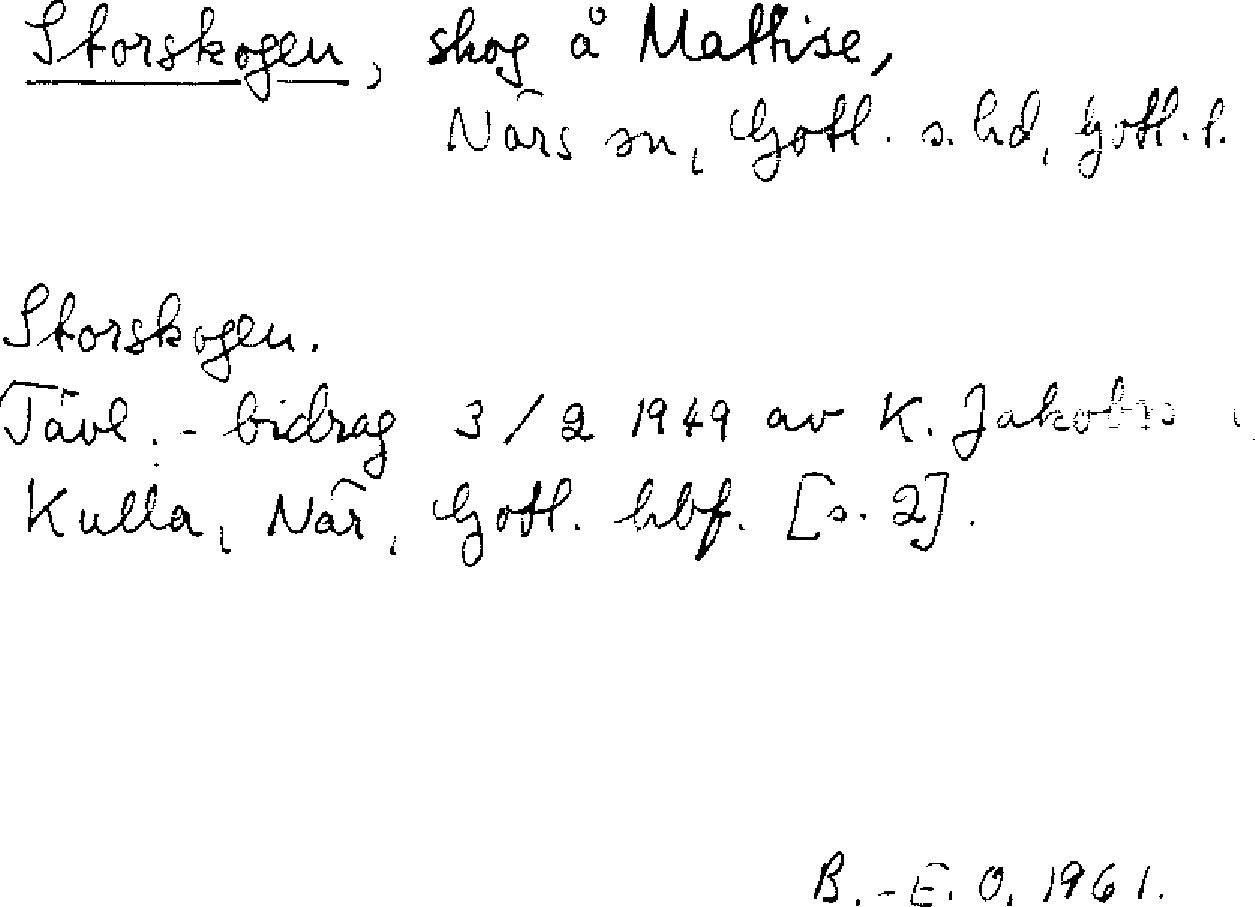 Storskogen, skog å Mattise,
När sn, Gotl. s. hd, Gotl. l.
Storskogen.
Tävl.-bidrag 3/2 1949 av K. Jakobs
Kulla, När, Gotl. hbf. [s. 2].
B.-E. O. 1961.